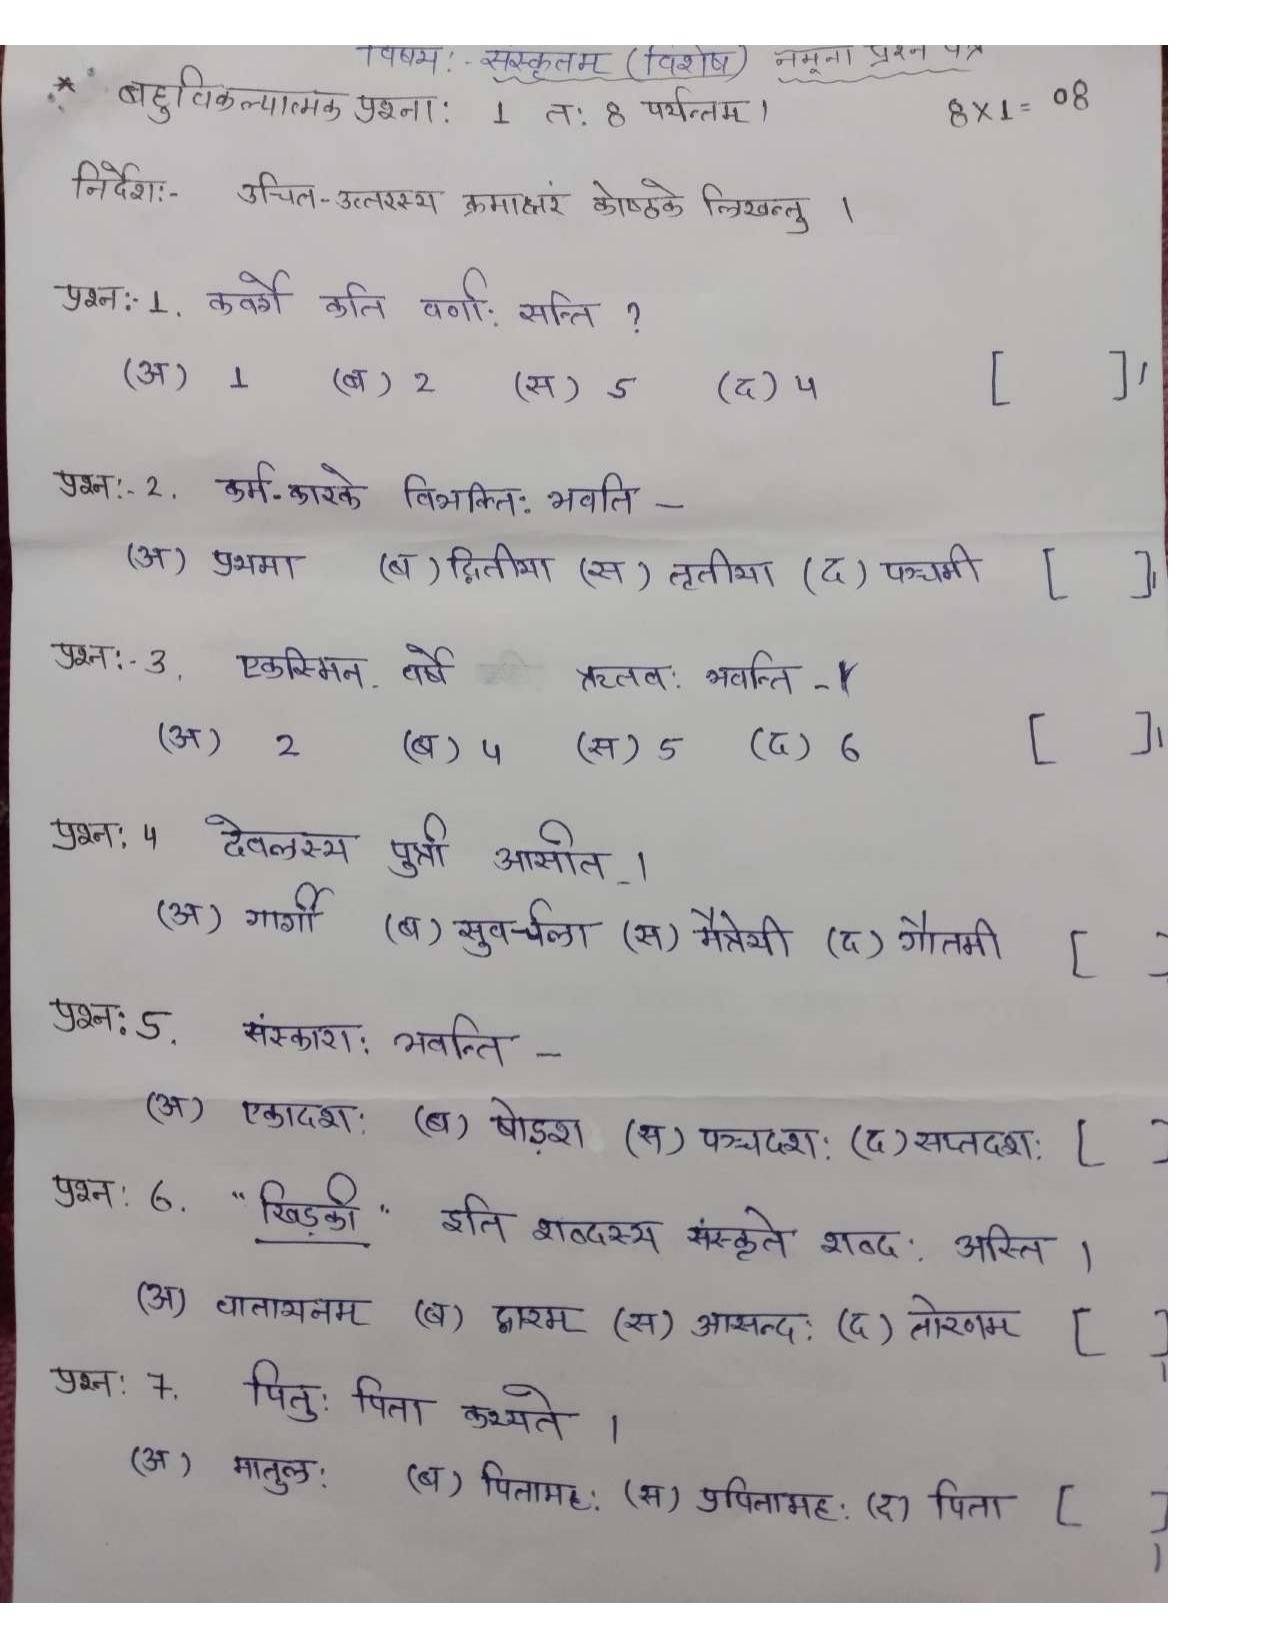 विषय:- संस्कृतम (विशेष) नमूना प्रश्न पत्र
* बहुविकल्पात्मक प्रश्ना: 1 त: 8 पर्यन्तम्। 8×1= 08
निर्देश:- उचित-उत्तरस्य क्रमाक्षरं कोष्ठके लिखन्तु ।
प्रश्न:-1. कवर्गे कति वर्णा: सन्ति ?
(अ) 1 (ब) 2 (स) 5 (द) 4 [ ] 1
प्रश्न:-2. कर्म-कारके विभक्ति: भवति –
(अ) प्रथमा (ब) द्वितीया (स) तृतीया (द) पञ्चमी [ ] 1
प्रश्न:-3. एकस्मिन् वर्षे ऋतव: भवन्ति -
(अ) 2 (ब) 4 (स) 5 (द) 6 [ ] 1
प्रश्न: 4 देवलस्य पुत्री आसीत् ।
(अ) गार्गी (ब) सुवर्चला (स) मैत्रेयी (द) गौतमी [ ]
प्रश्न: 5. संस्कारा: भवन्ति –
(अ) एकादश: (ब) षोड़श (स) पञ्चदश: (द) सप्तदश: [ ]
प्रश्न: 6. "खिड़की" इति शब्दस्य संस्कृते शब्द: अस्ति ।
(अ) वातायनम् (ब) द्वारम् (स) आसन्द: (द) तोरणम [ ] 1
प्रश्न: 7. पितु: पिता कथ्यते ।
(अ) मातुल: (ब) पितामह: (स) प्रपितामह: (द) पिता [ ] 1